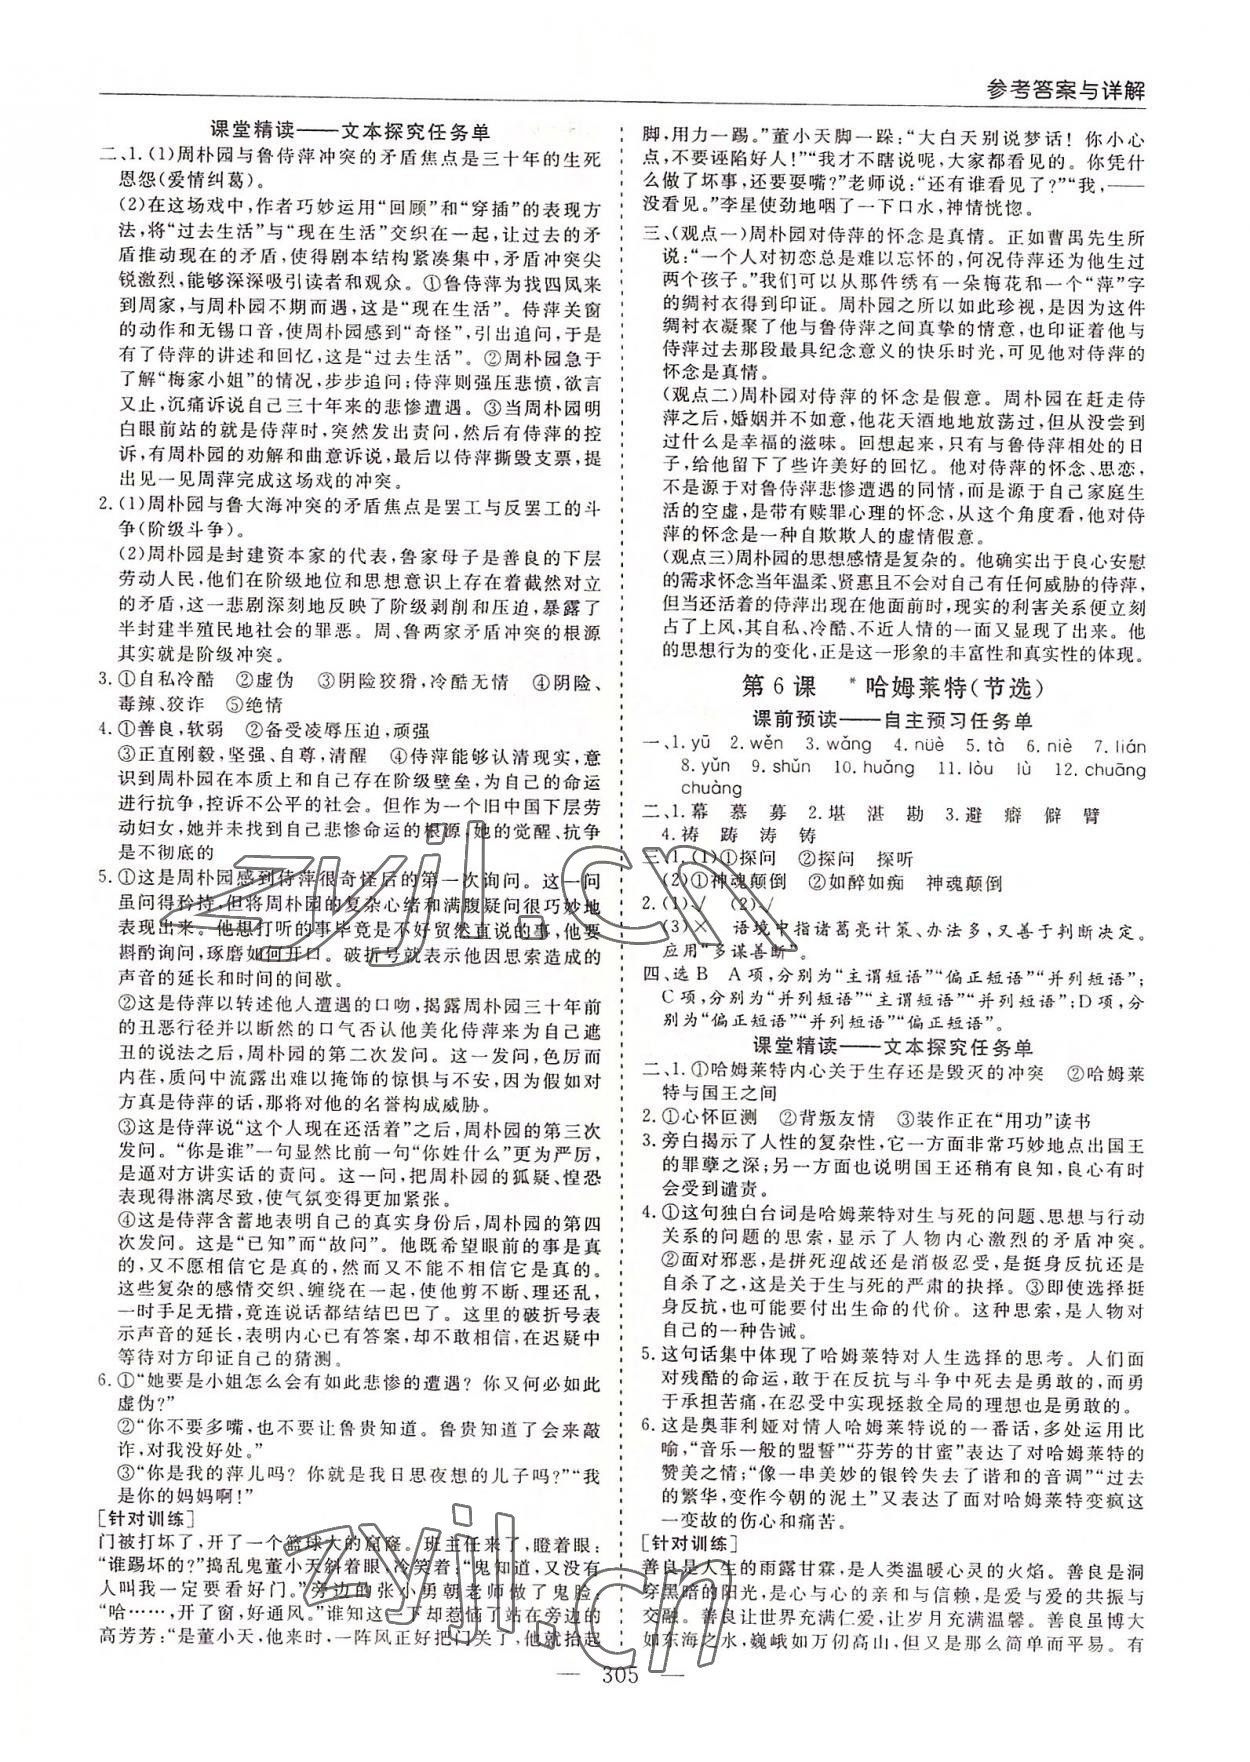 参考答案与详解
课堂精读——文本探究任务单
二、1.(1)周朴园与鲁侍萍冲突的矛盾焦点是三十年的生死
恩怨(爱情纠葛)。
(2)在这场戏中,作者巧妙运用“回顾”和“穿插”的表现方
法,将“过去生活”与“现在生活”交织在一起,让过去的矛
盾推动现在的矛盾,使得剧本结构紧凑集中,矛盾冲突尖
锐激烈,能够深深吸引读者和观众。①鲁侍萍为找四凤来
到周家,与周朴园不期而遇,这是“现在生活”。侍萍关窗
的动作和无锡口音,使周朴园感到“奇怪”,引出追问,于是
有了侍萍的讲述和回忆,这是“过去生活”。②周朴园急于
了解“梅家小姐”的情况,步步追问;侍萍则强压悲愤,欲言
又止,沉痛诉说自己三十年来的悲惨遭遇。③当周朴园明
白眼前站的就是侍萍时,突然发出责问,然后有侍萍的控
诉,有周朴园的劝解和曲意诉说,最后以侍萍撕毁支票,提
出见一见周萍完成这场戏的冲突。
2.(1)周朴园与鲁大海冲突的矛盾焦点是罢工与反罢工的斗
争(阶级斗争)。
(2)周朴园是封建资本家的代表,鲁家母子是善良的下层
劳动人民,他们在阶级地位和思想意识上存在着截然对立
的矛盾,这一悲剧深刻地反映了阶级剥削和压迫,暴露了
半封建半殖民地社会的罪恶。周、鲁两家矛盾冲突的根源
其实就是阶级冲突。
3.①自私冷酷 ②虚伪 ③阴险狡猾,冷酷无情 ④阴险、
毒辣、狡诈 ⑤绝情
4.①善良,软弱 ②备受凌辱压迫,顽强
③正直刚毅,坚强、自尊、清醒 ④侍萍能够深刻清醒地意
识到周朴园在本质上和自己存在阶级壁垒,为自己的命运
进行抗争,控诉不公平的社会。但作为一个旧中国下层劳
动妇女,她并未找到自己悲惨命运的根源,她的觉醒、抗争
是不彻底的
5.①这是周朴园感到侍萍很奇怪后的第一次询问。这一问
虽问得矜持,但将周朴园的复杂心绪和满腹疑问很巧妙地
表现出来。他想打听的事毕竟是不好贸然直说的事,他要
斟酌询问,琢磨如何开口。破折号就表示他因思索造成的
声音的延长和时间的间歇。
②这是侍萍以转述他人遭遇的口吻,揭露周朴园三十年前
的丑恶行径并以断然的口气否认他美化侍萍来为自己遮
丑的说法之后,周朴园的第二次发问。这一问写得意味深
长,质问中流露出难以掩饰的惊惧与不安,因为如果对
方真是侍萍的话,那将对他的名誉构成威胁。
③这是侍萍说“这个人现在还活着”之后,周朴园的第三次
发问。“你是谁”一句显然比前一句“你姓什么”更为严厉,
是逼对方讲实话的责问。这一问,把周朴园的狐疑、惶恐
表现得淋漓尽致,使气氛变得更加紧张。
④这是侍萍含蓄地表明自己的真实身份后,周朴园的第四
次发问。这是“已知”而“故问”。他既希望眼前的事不是真
的,又不愿相信它是真的,然而又不能不相信它是真的。
这些复杂的感情交织、缠绕在一起,使他剪不断、理还乱,
一时手足无措,竟连说话都结结巴巴了。这里的破折号表
示声音的延长,表明内心已有答案,却不敢相信,在迟疑中
等待对方印证自己的猜测。
6.①“她要是小姐怎么会有如此悲惨的遭遇?你又何必如此
虚伪?”
②“你不要多嘴,也不要让鲁贵知道。鲁贵知道了会来敲
诈,对我没好处。”
③“你是我的萍儿吗?你就是我日思夜想的儿子吗?”“我
是你的妈妈啊!”
[针对训练]
门被打坏了,开了一个篮球大的窟窿。班主任来了,瞪着眼:
“谁踢坏的?”捣乱鬼董小天斜着眼,冷笑着:“鬼知道,又没有
人叫我一定要看好门。”旁边的张小勇朝老师做了个鬼脸,
“哈……,开了窗,好通风。”谁知这一下却惹恼了站在旁边的
高芳芳:“是董小天,他来时,一阵风正好把门关了,他就抬起
脚,用力一踢。”董小天脚一跺:“大白天别说梦话!你小心
点,不要诬陷好人!”“我才不瞎说呢,大家都看见的。你凭什
么做了坏事,还要耍嘴?”老师说:“还有谁看见了?”“我,——
没看见。”李星使劲地咽了一下口水,神情恍惚。
三、(观点一)周朴园对侍萍的怀念是真情。正如曹禺先生所
说:“一个人对初恋总是难以忘怀的,何况侍萍为他生过
两个孩子。”我们可以从那件绣有一朵梅花和一个“萍”字
的绸衬衣得到印证。周朴园之所以如此珍视,是因为这件
绸衬衣凝聚了他与鲁侍萍之间真挚的情意,也印证着他与
侍萍过去那段最具纪念意义的快乐时光,可见他对侍萍的
怀念是真情。
(观点二)周朴园对侍萍的怀念是假意。周朴园在赶走侍
萍之后,婚姻并不如意,他花天酒地地放荡过,但从没尝到
过什么是幸福的滋味。回想起来,只有与鲁侍萍相处的日
子,给他留下了些许美好的回忆。他对侍萍的怀念、思恋,
不是源于对鲁侍萍悲惨遭遇的同情,而是源于自己家庭生
活的空虚,是带有赎罪心理的怀念,从这个角度看,他对侍
萍的怀念是一种自欺欺人的虚情假意。
(观点三)周朴园的思想感情是复杂的。他确实出于良心安慰
的需求怀念当年温柔、贤惠且不会对自己有任何威胁的侍萍,
但当还活着的侍萍出现在他面前时,现实的利害关系便立刻
占了上风,其自私、冷酷、不近人情的一面又显现了出来。他
的思想行为的变化,正是这一形象的丰富性和真实性的体现。
第6课 *哈姆莱特(节选)
课前预读——自主预习任务单
一、1.yū 2.wěn 3.wǎng 4.nüè 5.tà 6.niè 7.lián
8.yǔn 9.shǔn 10.huǎng 11.lòu lù 12.chuāng
chuàng
二、1.幕 慕 募 2.堪 湛 勘 3.避 癖 僻 臂
4.祷 踌 涛 铸
三、1.(1)①探问 ②探问 探听
(2)①神魂颠倒 ②如醉如痴 神魂颠倒
2.(1)√ (2)√
(3)× 语境中指诸葛亮计策、办法多,又善于判断决定。
应用“多谋善断”。
四、选B A项,分别为“主谓短语”“偏正短语”“并列短语”;
C项,分别为“并列短语”“主谓短语”“并列短语”;D项,分
别为“偏正短语”“并列短语”“偏正短语”。
课堂精读——文本探究任务单
二、1.①哈姆莱特内心关于生存还是毁灭的冲突 ②哈姆莱
特与国王之间
2.①心怀叵测 ②背叛友情 ③装作正在“用功”读书
3.旁白揭示了人性的复杂性,它一方面非常巧妙地点出国王
的罪孽之深;另一方面也说明国王还稍有良知,良心有时
会受到谴责。
4.①这句独白台词是哈姆莱特对生与死的问题、思想与行动
关系的问题的思索,显示了人物内心激烈的矛盾冲突。
②面对邪恶,是拼死迎战还是消极忍受,是挺身反抗还是
自杀了之,这是关于生与死的严肃的抉择。③即使选择挺
身反抗,也可能要付出生命的代价。这种思索,是人物对
自己的一种告诫。
5.这句话集中体现了哈姆莱特对人生选择的思考。人们面
对残酷的命运,敢于在反抗与斗争中死去是勇敢的,而勇
于承担苦痛,在忍受中实现拯救全局的理想也是勇敢的。
6.这是奥菲利娅对情人哈姆莱特说的一番话,多处运用比
喻,“音乐一般的盟誓”“芬芳的甘蜜”表达了对哈姆莱特的
赞美之情;“像一串美妙的银铃失去了谐和的音调”“过去
的繁华,变作今朝的泥土”又表达了面对哈姆莱特变疯这
一变故的伤心和痛苦。
[针对训练]
善良是人生的雨露甘霖,是人类温暖心灵的火焰。善良是洞
穿黑暗的阳光,是心与心的亲和与信赖,是爱与爱的共振与
交融。善良让世界充满仁爱,让岁月充满温馨。善良虽博大
如东海之水,巍峨如万仞高山,但又是那么简单而平易。有
— 305 —
zyjl.cn
zyjl.cn